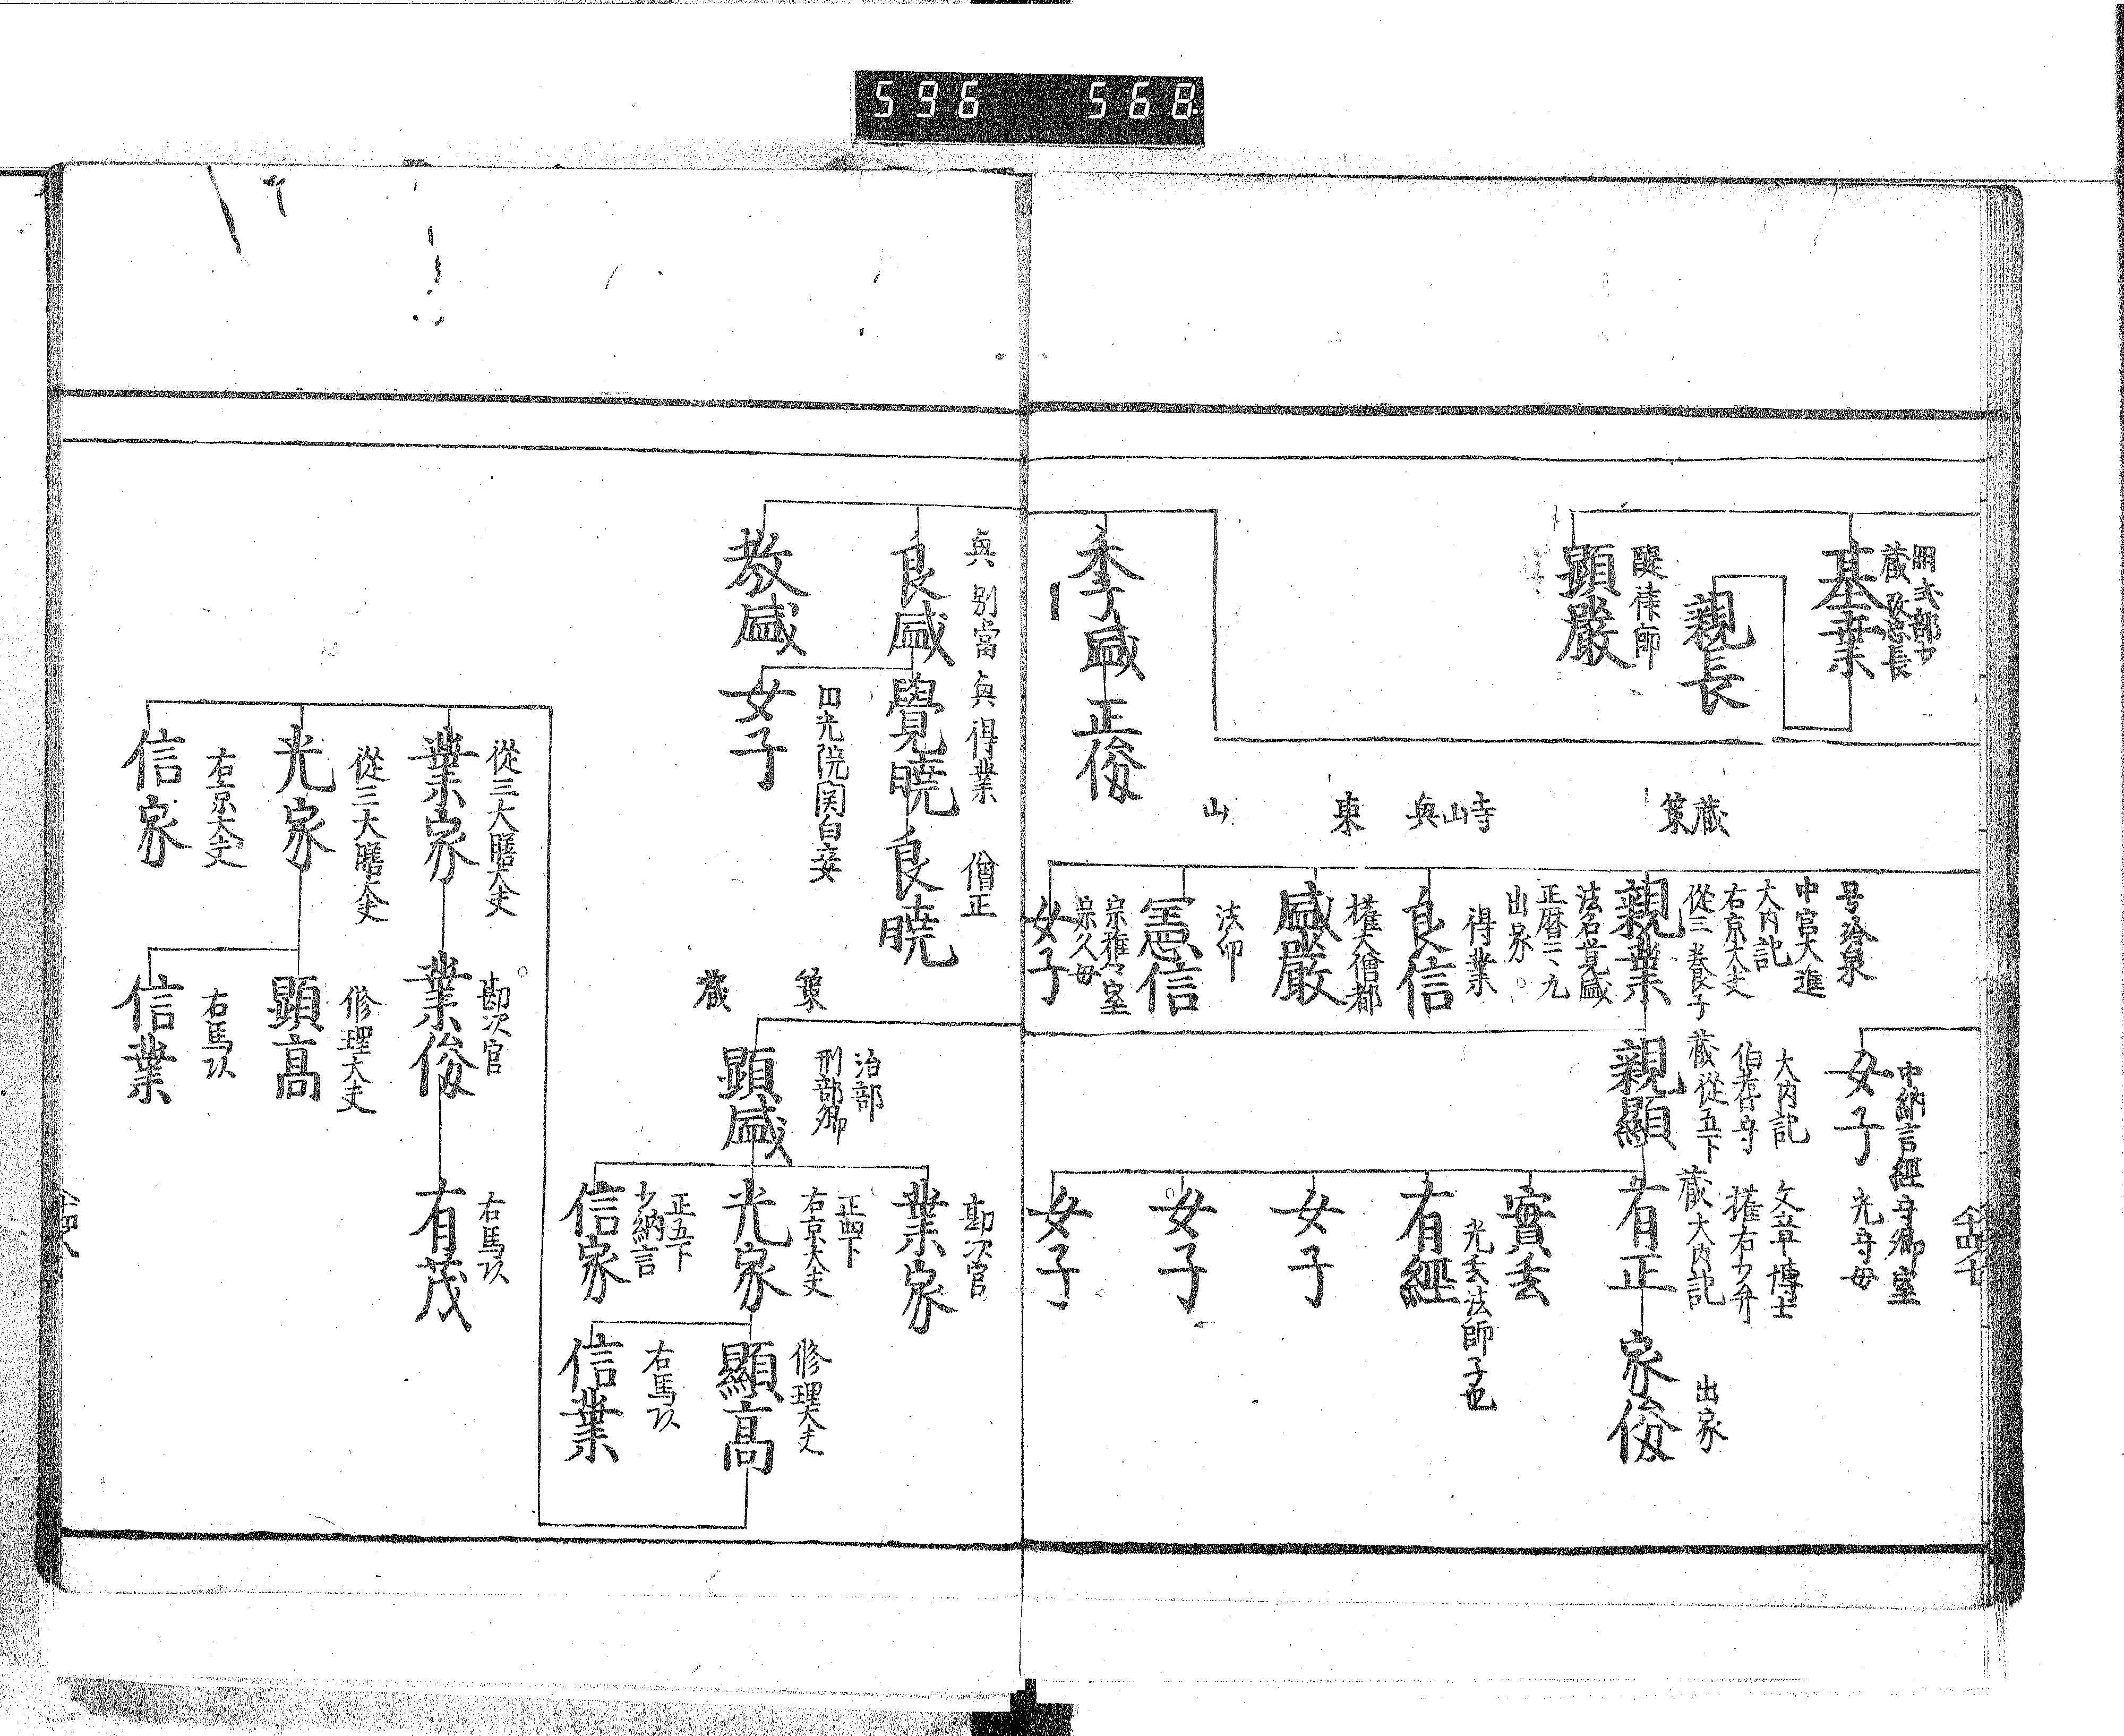 596 568
蔵改忠長
基業
親長
醍律師
顕嚴
季盛
正俊
策蔵
寺
山
興
東
山
号冷泉
中宮大進
大内記
右京大夫
從三養子
親業
正暦二、九
出家
得業
良信
権大僧都
盛嚴
法印
憲信
宗雅々室
宗久母
女子
中納言經守卿室
光守母
女子
大内記
伯耆守
蔵從五下
親顯
文章博士
権右少弁
蔵大内記
有正
出家
家俊
實玄
光玄法師子也
有經
女子
女子
女子
興別當
良盛
興得業
覺曉
僧正
良曉
教盛
四光院関白妾
女子
策
蔵
治部
刑部卿
顕盛
勘次官
業家
正四下
右京大夫
光家
正五下
少納言
信家
修理大夫
顯高
右馬以
信業
從三大膳大夫
業家
勘次官
業俊
右馬以
有茂
從三大膳大夫
光家
修理大夫
顕高
右京大夫
信家
右馬以
信業